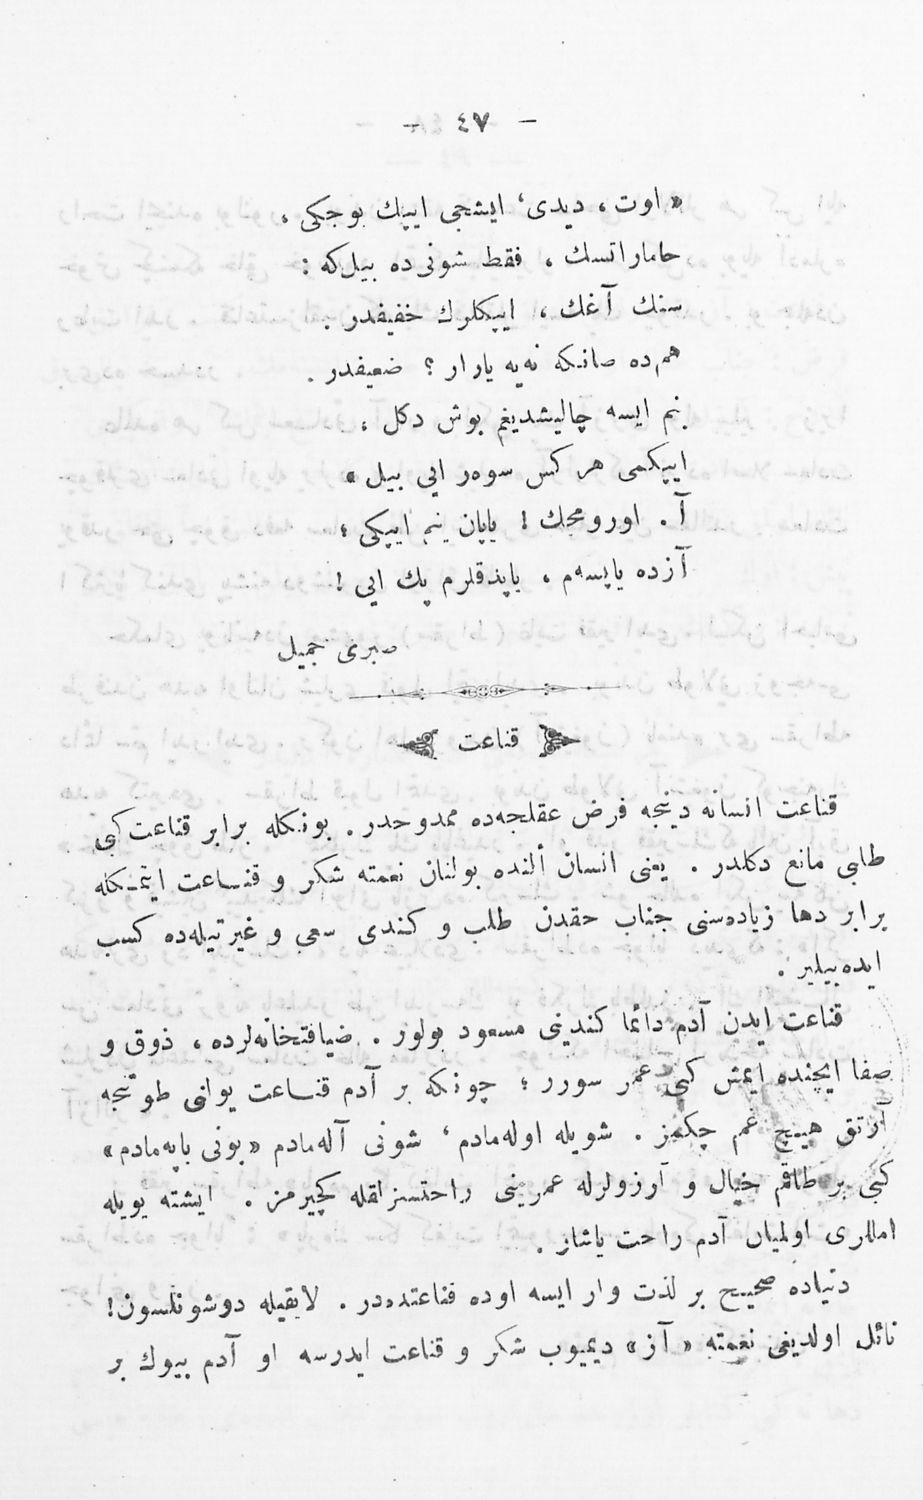 — ٤٧ —
« اوت ، ديدى ، ايشجى ايپك بوجكى ،
حاماراتسك ، فقط شونى ده بيل كه :
سنك آغك ، ايپكلرك خفيفدر .
هم ده صانكه نه يه يارار ؟ ضعيفدر .
بنم ايسه چاليشديغم بوش دكل ،
ايپكمى هر كس سوه ر ايي بيل »
آ . اورومجك ! ياپان بنم ايپكى ؛
آزده ياپسه م ، ياپدقلرم پك ايي !
صبرى جميل
قناعت
قناعت انسانه دينجه فرض عقلجه ده ممدوحدر . بونكله برابر قناعت كبى
طلبى مانع دكلدر . يعنى انسان ألنده بولنان نعمته شكر و قنساعت ايتمكله
برابر دها زياده سنى جناب حقدن طلب و كندى سعى و غيرتيله ده كسب
ايده بيلير .
قناعت ايدن آدم دائما كنديني مسعود بولور . ضيافتخانه لرده ، ذوق و
صفا ايچنده ايمش كبى عمر سورر ؛ چونكه بر آدم قنساعت يولنى طوتنجه
آرتق هيچ غم چكمز . شويله اوله مادم ، شونى آله مادم « بونى ياپه مادم »
كبى بر طاقم خيال و آرزولرله عمرينى راحتسزلقله كچيرمز . ايشته بويله
امللرى اولميان آدم راحت ياشار .
دنياده صحيح بر لذت وار ايسه اوده قناعتده در . لايقيله دوشونلسون !
نائل اولديغى نعمته « آز » ديميوب شكر و قناعت ايدرسه او آدم بيوك بر